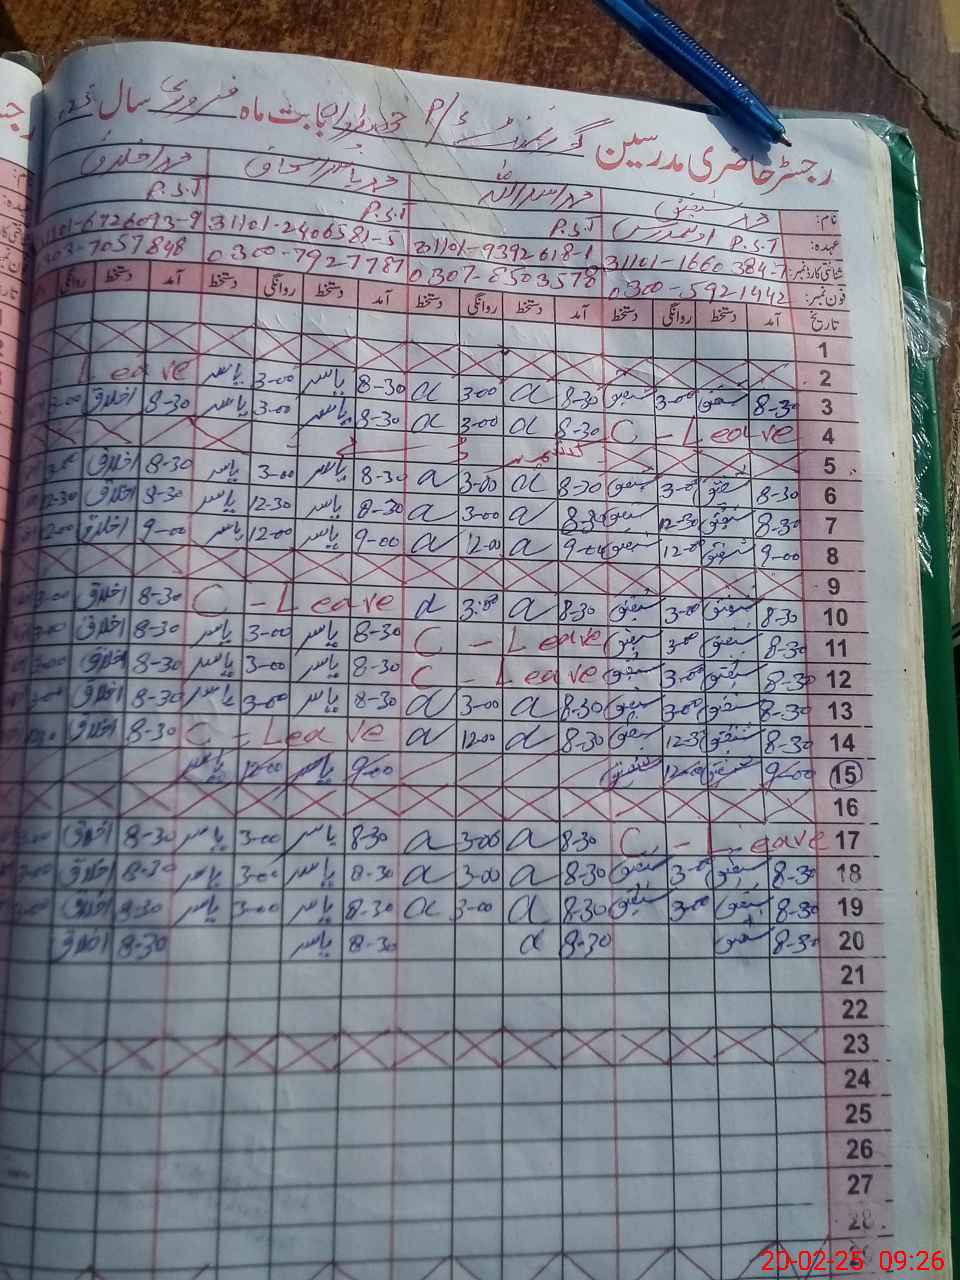 رجسٹر حاضری مدرسین گورنمنٹ P/S بابت ماہ فروری سال 25
نام: محمد شفیق محمد اسد اللہ محمد یاسر اسحاق محمد اخلاق
عہدہ: P.S.T P.S.T P.S.T P.S.T
شناختی کارڈ نمبر: 31101-1660384-7 31101-9392618-1 31101-2406581-5 31101-6726093-9
فون نمبر: 0300-5921442 0307-8503578 0300-7927787 303-7057848
تاریخ آمد دستخط روانگی دستخط آمد دستخط روانگی دستخط آمد دستخط روانگی دستخط آمد دستخط روانگی
1
2
3 8-30 شفیق 3-00 شفیق 8-30 a 3-00 a 8-30 یاسر 3-00 یاسر Leave
4 C - Leave 8-30 a 3-00 a 8-30 یاسر 3-00 یاسر 8-30 اخلاق 3-00
5
6 8-30 شفیق 3-00 شفیق 8-30 a 3-00 a 8-30 یاسر 3-00 یاسر 8-30 اخلاق 3-00
7 8-30 شفیق 12-30 شفیق 8-30 a 3-00 a 8-30 یاسر 12-30 یاسر 8-30 اخلاق 12-30
8 9-00 شفیق 12-00 شفیق 9-00 a 12-00 a 9-00 یاسر 12-00 یاسر 9-00 اخلاق 12-00
9
10 8-30 شفیق 3-00 شفیق 8-30 a 3-00 a C - Leave 8-30 اخلاق 3-00
11 8-30 شفیق 3-00 شفیق C - Leave 8-30 یاسر 3-00 یاسر 8-30 اخلاق 3-00
12 8-30 شفیق 3-00 شفیق C - Leave 8-30 یاسر 3-00 یاسر 8-30 اخلاق 3-00
13 8-30 شفیق 3-00 شفیق 8-30 a 3-00 a 8-30 یاسر 3-00 یاسر 8-30 اخلاق 3-00
14 8-30 شفیق 12-30 شفیق 8-30 a 12-00 a C - Leave 8-30 اخلاق
15 9-00 شفیق 12-00 شفیق 9-00 یاسر 12-00 یاسر
16
17 C - Leave 8-30 a 3-00 a 8-30 یاسر 3-00 یاسر 8-30 اخلاق
18 8-30 شفیق 3-00 شفیق 8-30 a 3-00 a 8-30 یاسر 3-00 یاسر 8-30 اخلاق 3-00
19 8-30 شفیق 3-00 شفیق 8-30 a 3-00 a 8-30 یاسر 3-00 یاسر 8-30 اخلاق
20 8-30 شفیق 8-30 a 8-30 یاسر 8-30 اخلاق
21
22
23
24
25
26
27
28
20-02-25 09:26